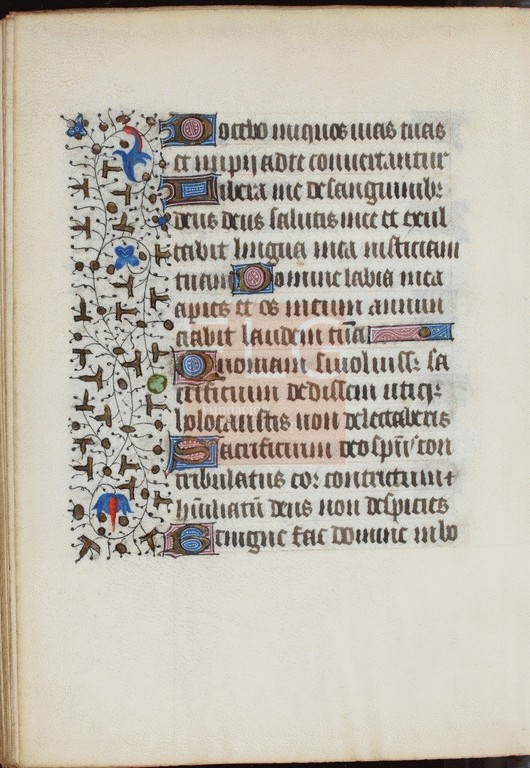 Docebo iniquos vias tuas
et impij ad te convertantur
Libera me de sanguinibz
deus deus salutis mee et exul
tabit lingua mea iusticiam
tuam Domine labia mea
apies et os meum annun
ciabit laudem tuā
Quoniam si voluissz sa
crificium dedissem utiqz
holocaustis non delectaberis
Sacrificium deo spūs con
tribulatus cor contrictum et
hūiliatū deus non despicies
Benigne fac domine in bo
FLG
Fundación